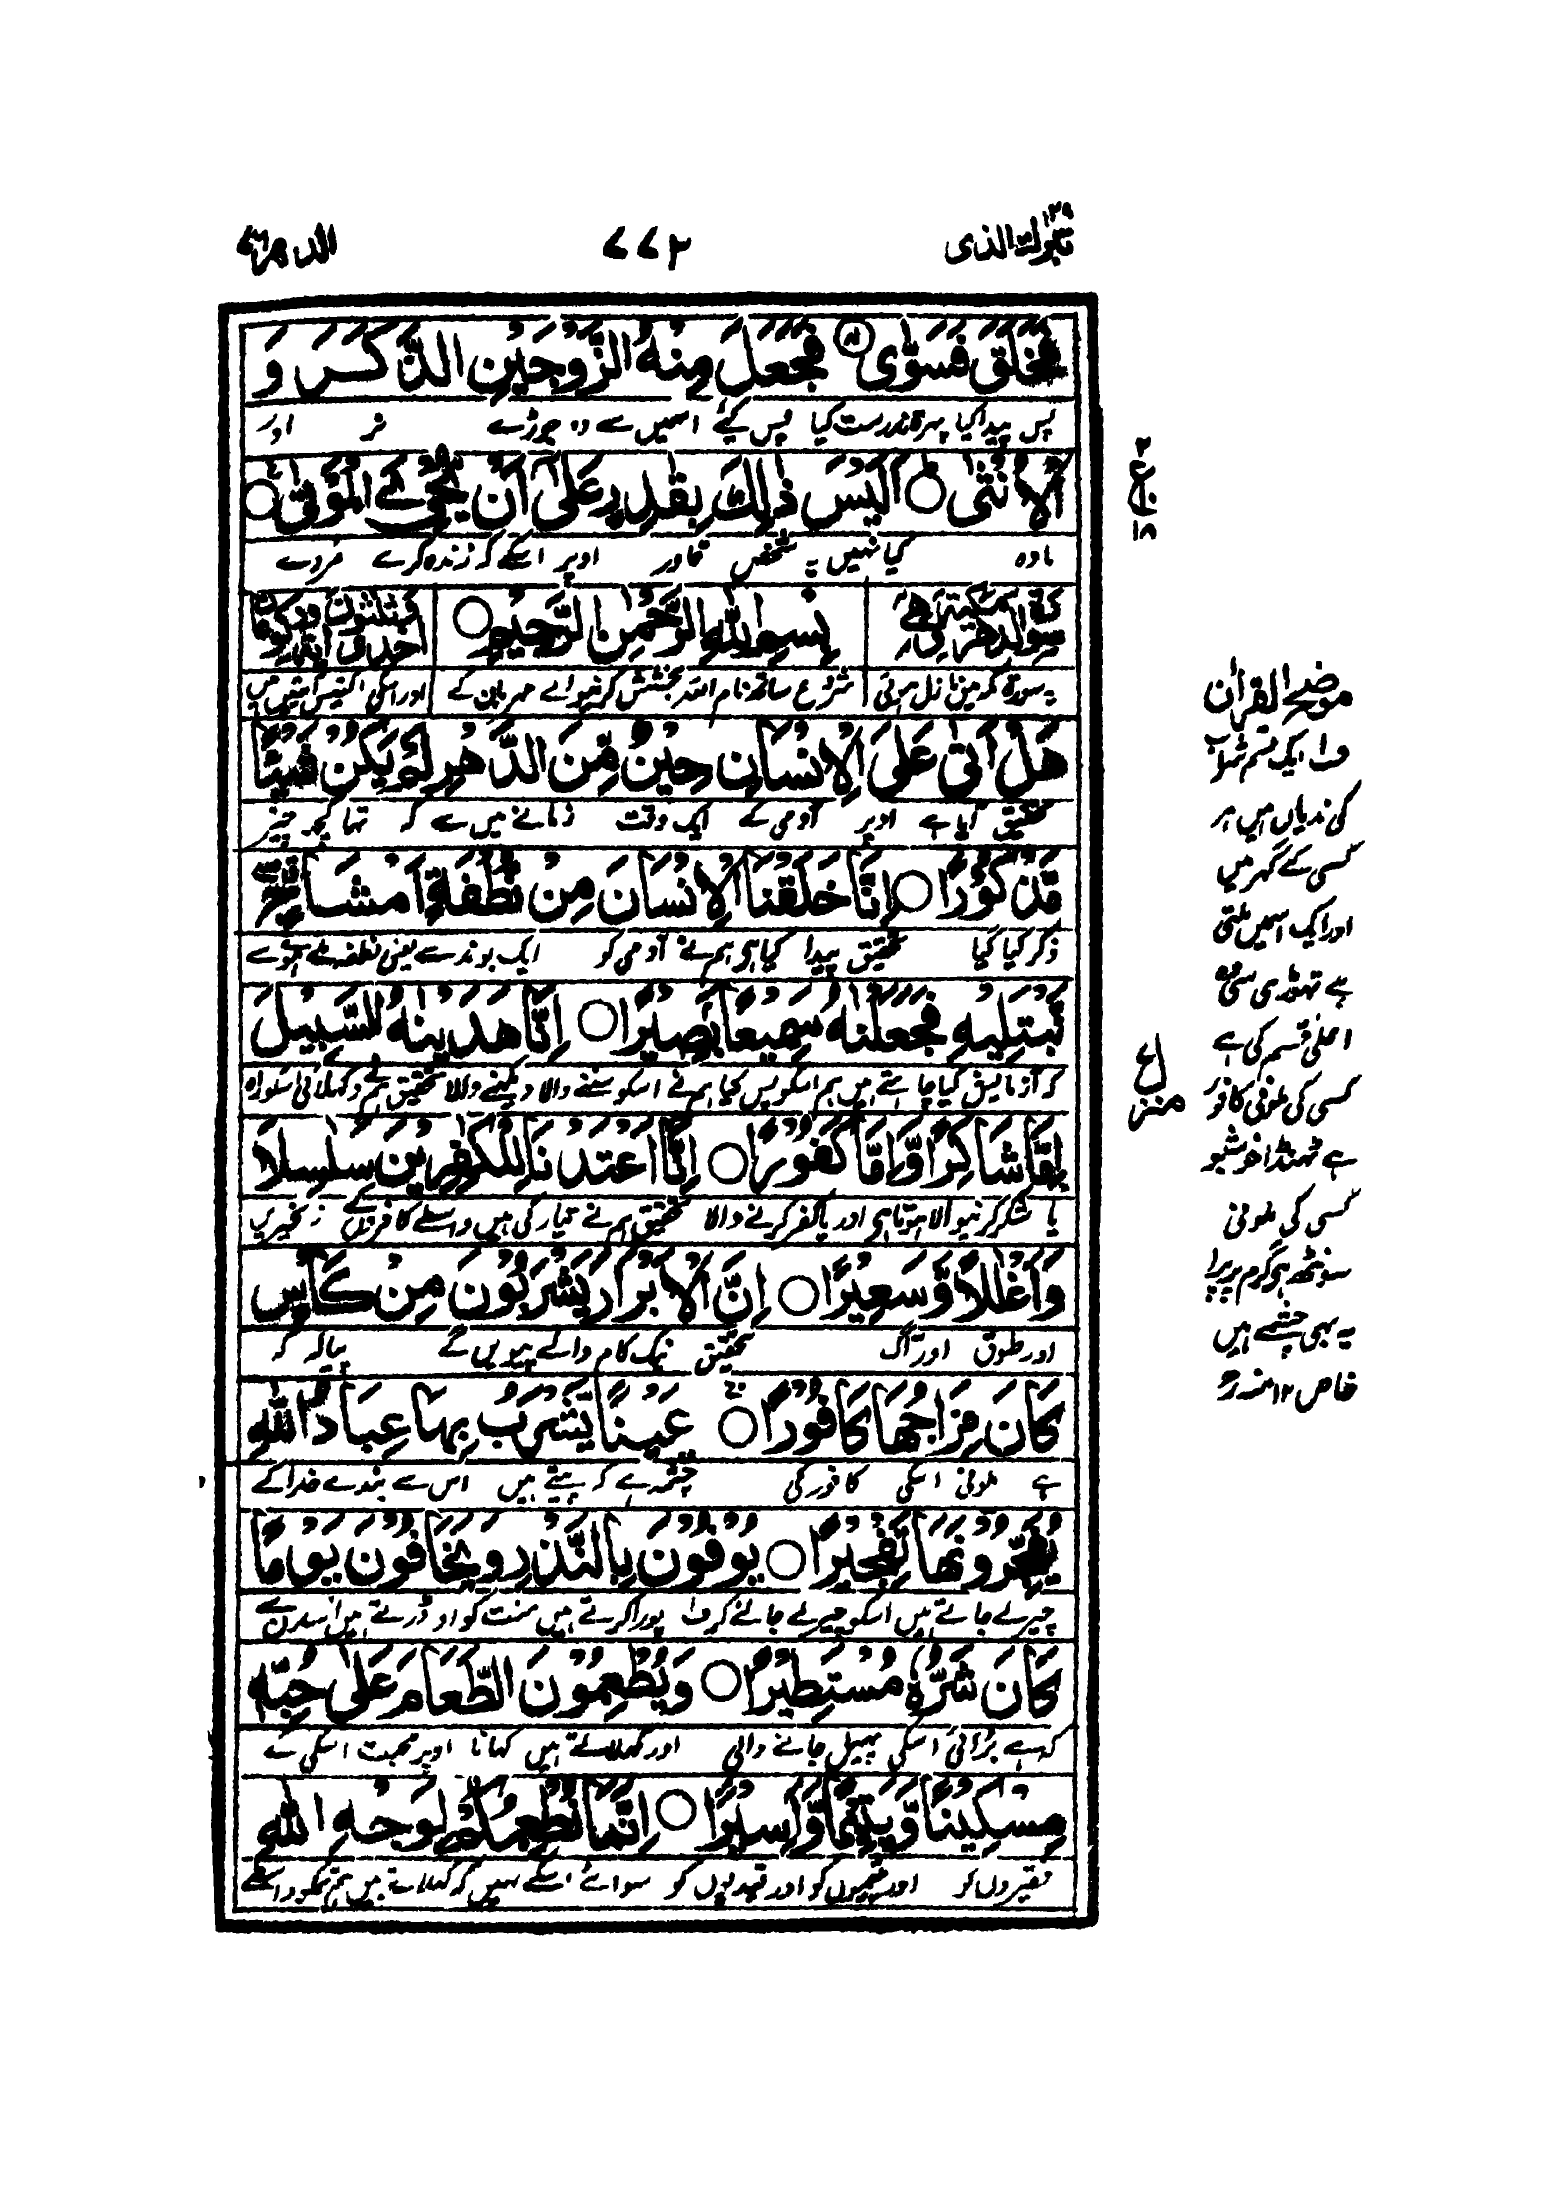 تبٰرك الذی ۲۹
۷۷۲
الدهر ۷۶
فَخَلَقَ فَسَوّٰى ۙ فَجَعَلَ مِنْهُ الزَّوْجَيْنِ الذَّكَرَ وَ
پس پیدا کیا پہر تندرست کیا پس کیٔے اسمیں سے دو جوڑے نر اور
الْاُنْثٰى ○ اَلَيْسَ ذٰلِكَ بِقٰدِرٍ عَلٰٓى اَنْ يُّحْيِۦَ الْمَوْتٰى ○
مادہ کیا نہیں یہ شخص قادر اوپر اسکے کہ زندہ کرے مردے
سورة الدهر مكية وهي
بِسْمِ اللّٰهِ الرَّحْمٰنِ الرَّحِيْمِ ○
احدى وثلثون اية وركوعان
یہ سورۃ مکہ میں نازل ہوئی
شروع ساتھ نام اللہ بخشش کرنیوالے مہربان کے
اور اسکی اکتیس آیتیں ہیں
هَلْ اَتٰى عَلَى الْاِنْسَانِ حِيْنٌ مِّنَ الدَّهْرِ لَمْ يَكُنْ شَيْـًٔا
تحقیق آیا ہے اوپر آدمی کے ایک وقت زمانے میں سے کہ نتہا کچہ چیز
مَّذْكُوْرًا ○ اِنَّا خَلَقْنَا الْاِنْسَانَ مِنْ نُّطْفَةٍ اَمْشَاجٍ
ذکر کیا گیا تحقیق پیدا کیا ہی ہم نے آدمی کو ایک بوند سے یعنی نطفہ ملے ہوے
نَّبْتَلِيْهِ فَجَعَلْنٰهُ سَمِيْعًۢا بَصِيْرًا ○ اِنَّا هَدَيْنٰهُ السَّبِيْلَ
کہ آزمایش کیا چاہتے ہیں ہم اسکو پس کیا ہم نے اسکو سننے والا دیکہنے والا تحقیق ہم نے دکہلائی اسکو راہ
اِمَّا شَاكِرًا وَّاِمَّا كَفُوْرًا ○ اِنَّآ اَعْتَدْنَا لِلْكٰفِرِيْنَ سَلٰسِلَا۟
یا شکر کرنیوالا ہوتا ہی اور یا کفر کرنے والا تحقیق ہم نے تیار کی ہیں واسطے کافروں کے زنجیریں
وَاَغْلٰلًا وَّسَعِيْرًا ○ اِنَّ الْاَبْرَارَ يَشْرَبُوْنَ مِنْ كَاْسٍ
اور طوق اور آگ تحقیق نیک کام والے پیویں گے پیالہ کہ
كَانَ مِزَاجُهَا كَافُوْرًا ○ عَيْنًا يَّشْرَبُ بِهَا عِبَادُ اللّٰهِ
ہے ملونی اسکی کافور کی چشمہ ہے کہ پیتے ہیں اس سے بندے خدا کے
يُفَجِّرُوْنَهَا تَفْجِيْرًا ○ يُوْفُوْنَ بِالنَّذْرِ وَيَخَافُوْنَ يَوْمًا
چیرلے جاتے ہیں اسکو چیرلے جانے کر ف پورا کرتے ہیں منت کو اور ڈرتے ہیں اسدن سے
كَانَ شَرُّهٗ مُسْتَطِيْرًا ○ وَيُطْعِمُوْنَ الطَّعَامَ عَلٰى حُبِّهٖ
کہ ہے بڑائی اسکی پہیل جانے والی اور کہلاتے ہیں کہانا اوپر محبت اسکی کے
مِسْكِيْنًا وَّيَتِيْمًا وَّاَسِيْرًا ○ اِنَّمَا نُطْعِمُكُمْ لِوَجْهِ اللّٰهِ
فقیروں کو اور یتیموں کو اور قیدیوں کو سواے اسکے نہیں کہ کہلاتے ہیں ہم تمکو واسطے
۲
ع
۱۸
ع
منزل
موضح القرآن
ف ایک قسم شراب
کی ندیاں ہیں ہر
کسی کے گہر میں
اور ایک اسمیں ملتی
ہے تہوڑی سی وہ
اعلی قسم کی ہے
کسی کی ملونی کافور
ہے ٹھنڈا خوشبو
کسی کی ملونی
سونٹھ ہی گرم چرپرا
یہ بہی چشمے ہیں
خاص ۱۲ منہ رح